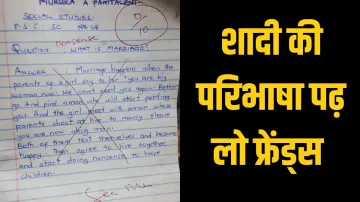 MURURA A PAMITALENI
SOCIAL STUDIES
P.S.S SC NS UA
Nonsense
0/10
QUESTION WHAT IS MARRIAGE?
ANSWER Marriage happens when the
parents of a girl say to her "you are big
woman now. We can't feed you again. Better
go and find a man who will start feeding
you. And the girl meet with a man whose
parents shout at him to marry. You are
you are now big man.
Both of them test themselves and become
happy. Then agree to live together
and start doing nonsense to have
children.
See Me
शादी की
परिभाषा पढ़
लो फ्रेंड्स